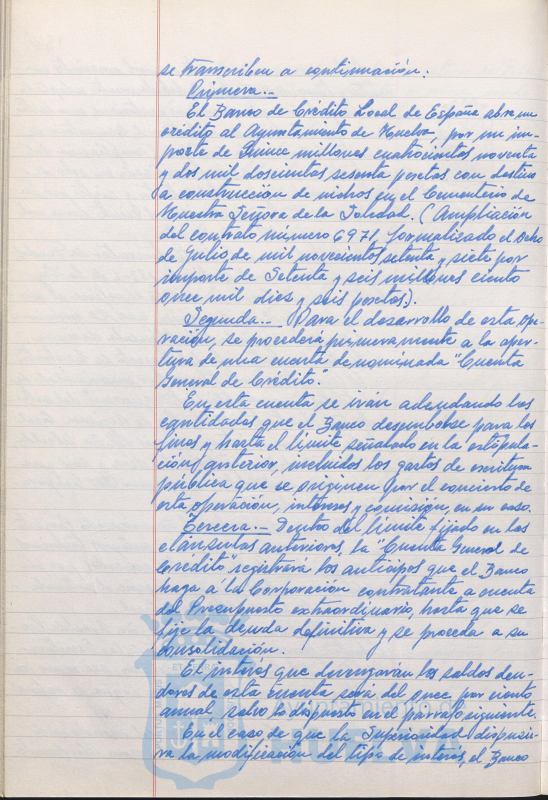 se transcriben a continuación:
Primera.-
El Banco de Crédito Local de España abre un
crédito al Ayuntamiento de Huelva, por un im-
porte de Quince millones cuatrocientas noventa
y dos mil doscientas sesenta pesetas con destino
a construcción de nichos en el Cementerio de
Nuestra Señora de la Soledad. (Ampliación
del contrato número 6971, formalizado el Ocho
de Julio de mil novecientos setenta y siete por
importe de Setenta y seis millones ciento
once mil diez y seis pesetas).
Segunda.- Para el desarrollo de esta ope-
ración, se procederá primeramente a la aper-
tura de una cuenta denominada "Cuenta
General de Crédito".
En esta cuenta se irán adeudando las
cantidades que el Banco desembolse para los
fines y hasta el límite señalado en la estipula-
ción anterior, incluidos los gastos de escritura
pública que se originen por el concierto de
esta operación, intereses y comisión, en su caso.
Tercera.- Dentro del límite fijado en las
cláusulas anteriores, la "Cuenta General de
Crédito" registrará los anticipos que el Banco
haga a la Corporación contratante a cuenta
del Presupuesto extraordinario, hasta que se
fije la deuda definitiva y se proceda a su
consolidación.
El interés que devengarán los saldos deu-
dores de esta cuenta será del once por ciento
anual, salvo lo dispuesto en el párrafo siguiente.
En el caso de que la Superioridad dispusie-
ra la modificación del tipo de interés, el Banco
Ayuntamiento de
HUELVA